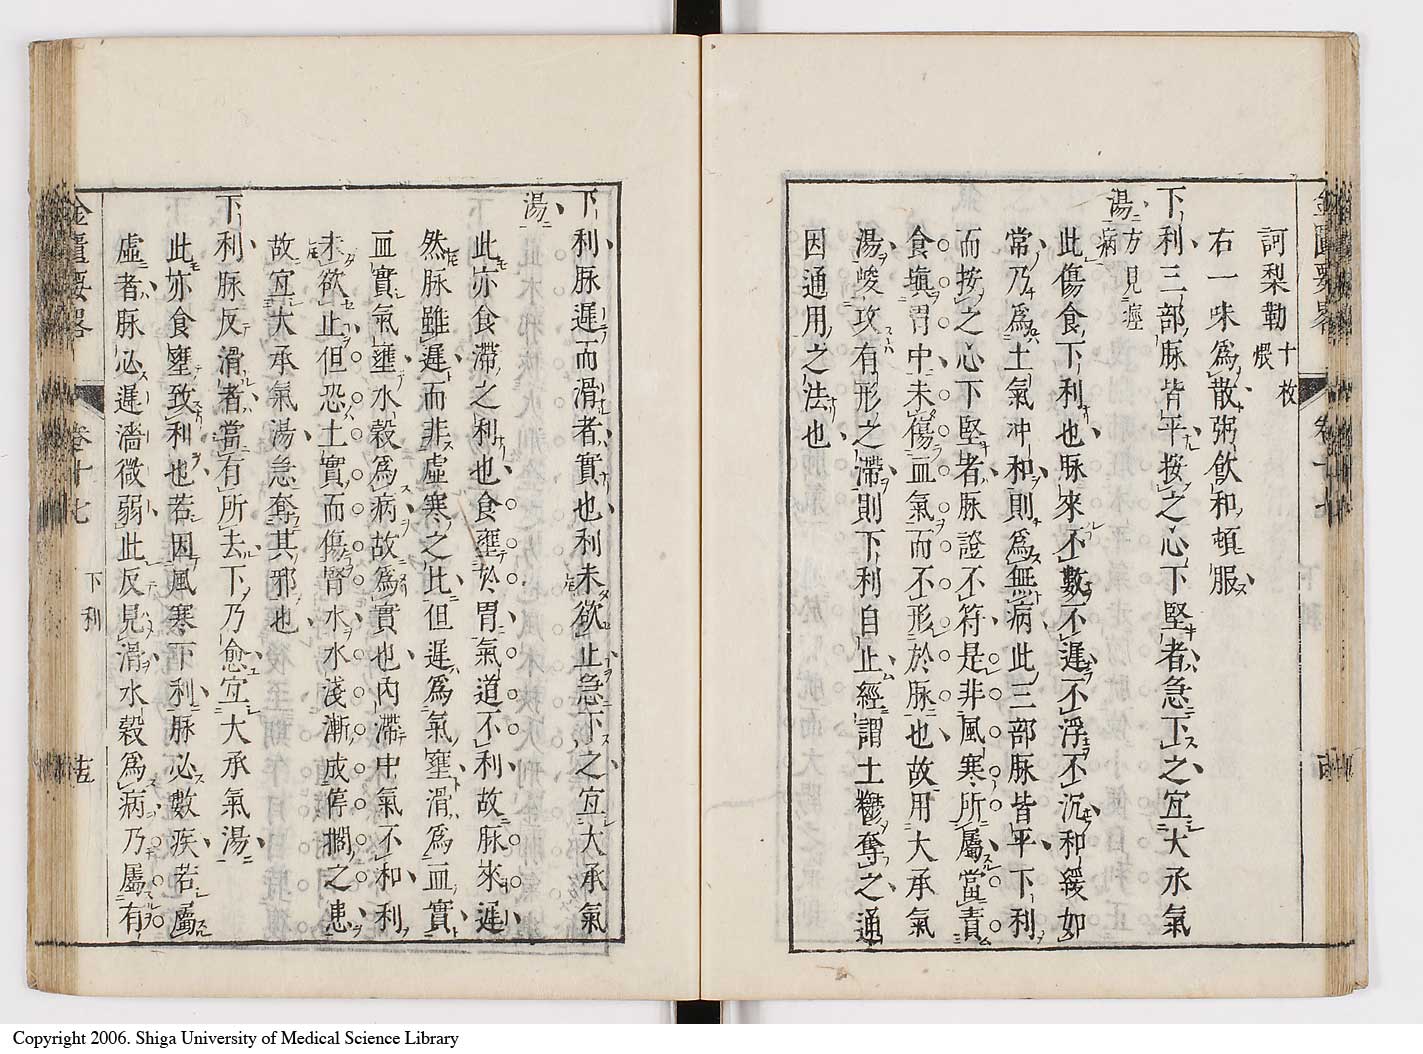 訶梨勒十枚煨
右一味爲散粥飲和頓服
下利三部脉皆平按之心下堅者急下之宜大承氣
湯方見痙病
此傷食下利也脉來不數不遲不浮不沉和緩如
常乃爲土氣冲和則爲無病此三部脉皆平下利
而按之心下堅者脉證不符是非風寒所屬當責
食塡胃中未傷血氣而不形於脉也故用大承氣
湯峻攻有形之滯則下利自止經謂土鬱奪之通
因通用之法也
下利脉遲而滑者實也利未欲止急下之宜大承氣
湯
此亦食滯之利也食壅於胃氣道不利故脉來遲
然脉雖遲而非虛寒之比但遲爲氣壅滑爲血實
血實氣壅水穀爲病故爲實也內滯中氣不和利
未欲止但恐土實而傷腎水水淺漸成停擱之患
故宜大承氣湯急奪其邪也
下利脉反滑者當有所去下乃愈宜大承氣湯
此亦食壅致利也若因風寒下利脉必數疾若屬
虛者脉必遲濇微弱此反見滑水穀爲病乃屬有
金匱要畧 卷十七 下利 十五
Copyright 2006. Shiga University of Medical Science Library